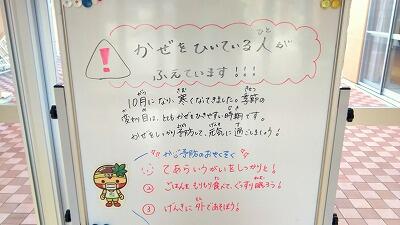 !
かぜをひいている人が
ふえています!!!
10月になり、寒くなってきました。季節の
変わり目は、とてもかぜをひきやすい時期です。
かぜをしっかり予防して、元気に過ごしましょう!
かぜ予防のおやくそく
てあらいうがいをしっかりと!
② ごはんをもりもり食べて、ぐっすり眠ろう!
③ げんきに外であそぼう!